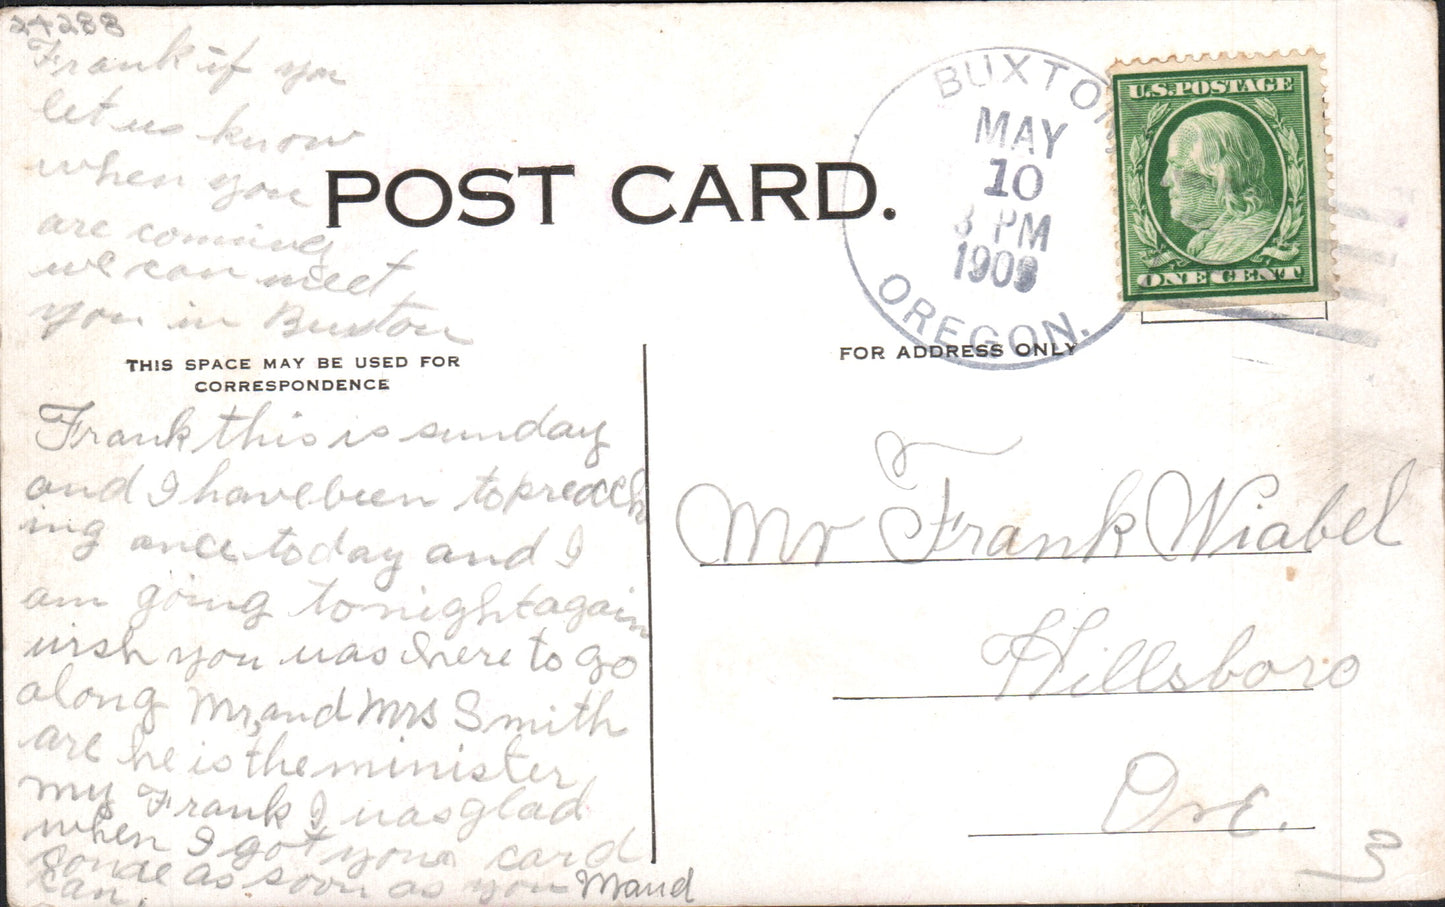 24288
Frank if you
let us know
when you
are coming
we can meet
you in Buxton
POST CARD.
THIS SPACE MAY BE USED FOR
CORRESPONDENCE
Frank this is sunday
and I have been to preach
ing once today and I
am going to night again
wish you uas here to go
along Mr, and Mrs Smith
are he is the minister
my Frank I uas glad
when I got your card
as soon as you
can,
Maud
BUXTON
MAY
10
3 PM
1909
OREGON.
U.S. POSTAGE
ONE CENT
FOR ADDRESS ONLY
Mr Frank Wiabel
Hillsboro
Ore.
3